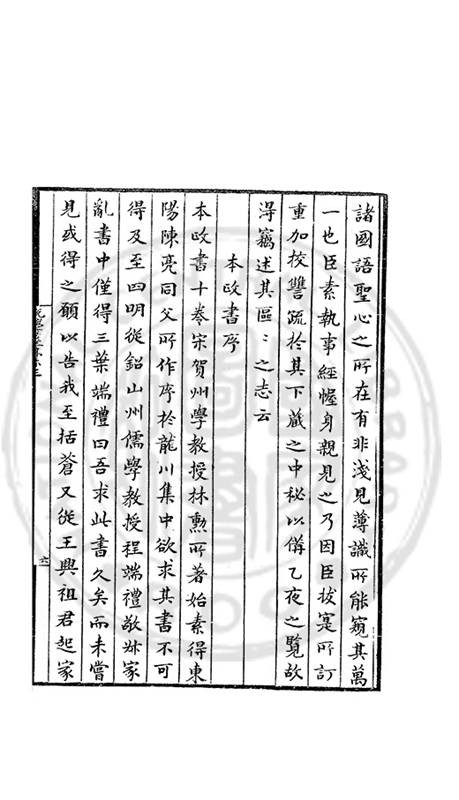 諸國語聖心之所在有非淺見薄識所能窺其萬
一也臣素執事經幄身親見之乃因臣拔寔所訂
重加校讐疏於其下蔵之中秘以備乙夜之覽故
淂竊述其區〻之志云
本政書序
本政書十卷宋賀州學教授林勲所著始素得東
陽陳亮同父所作序於龍川集中欲求其書不可
得及至四明從鉛山州儒學教授程端禮敬叔家
亂書中僅得三葉端禮曰吾求此書久矣而未嘗
見或得之願以告我至括蒼又從王興祖君起家
六